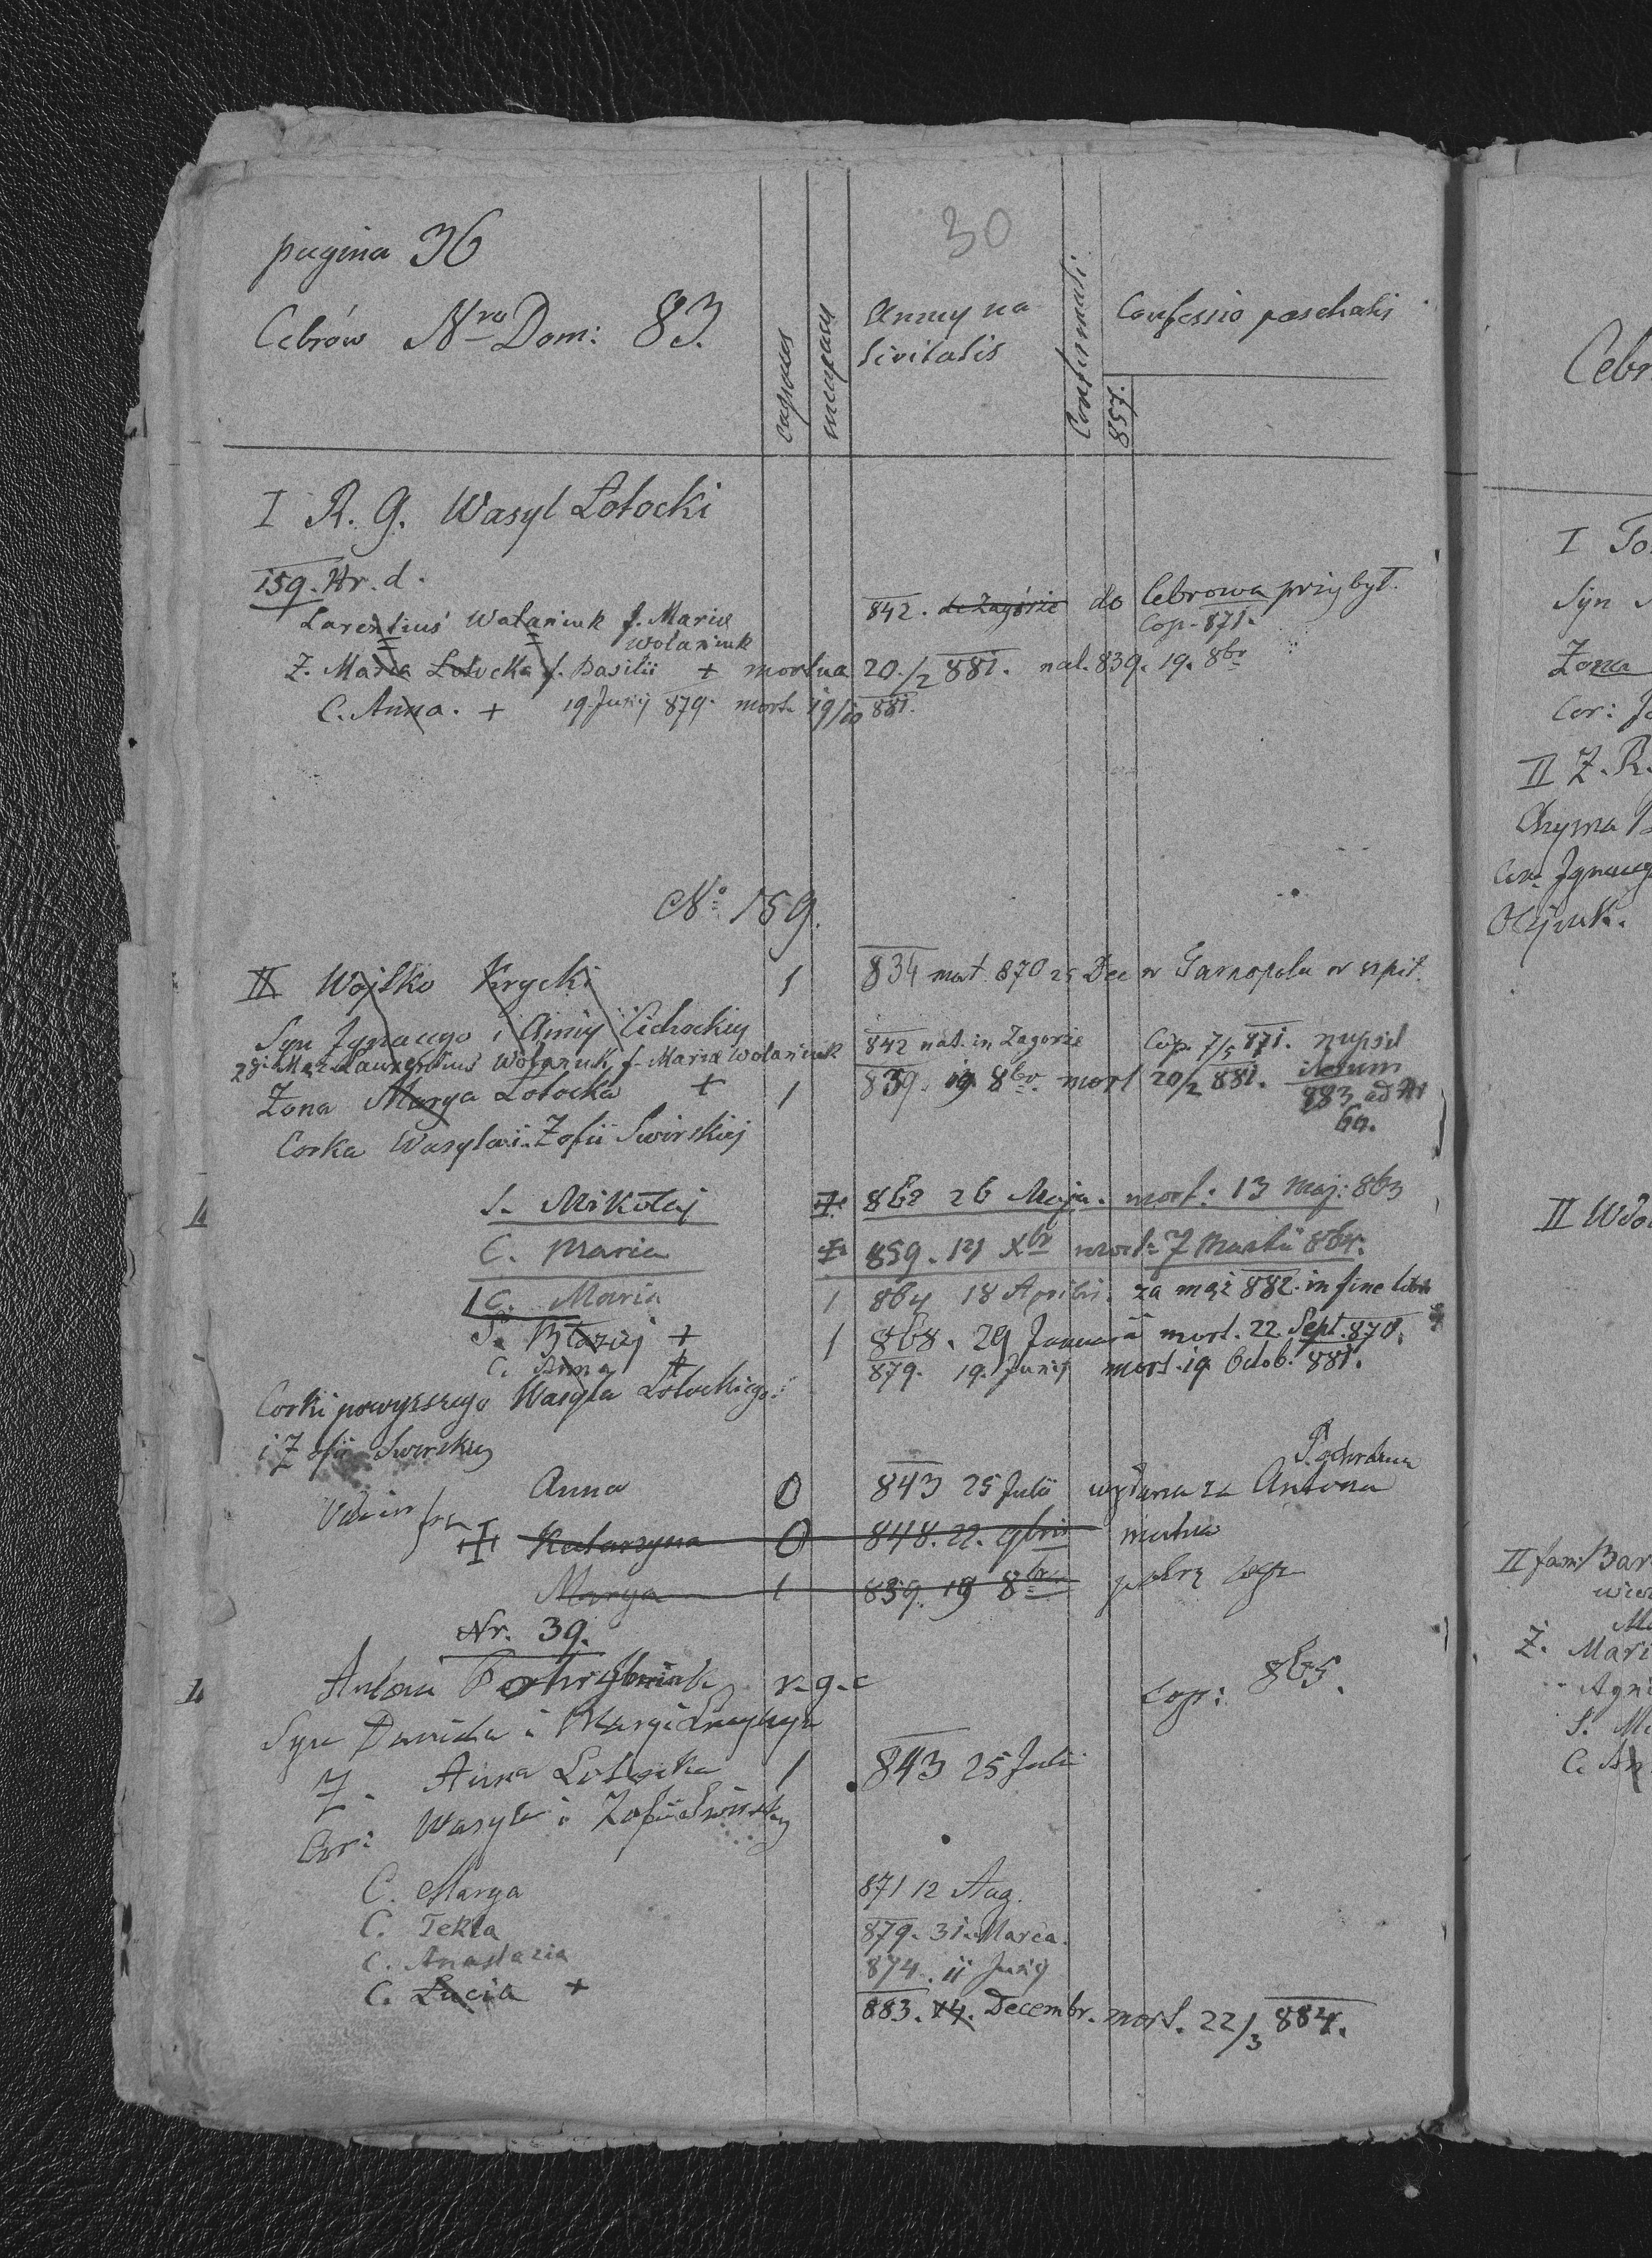 30
pagina 36
Cebrów Nro Dom: 83.
capaces
incapaces
Annus na
tivitatis
Confirmati.
Confessio paschalis
857.
I R. G. Wasyl Łotocki
159. Nr. d.
Larentius Wolaniuk f. Mariæ
Wolaniuk
842. de Zagórze do Cebrowa przybył.
Cop. 871.
Ż. Maria Łotocka f. Basilii + mortua 20./2 881. nat. 839. 19. 8br
C. Anna. + 19. Junij 879. mort. 19/10 881.
No 159.
II Wojtko Krycki 1 834 mort. 870 25 Dec w Tarnopolu w szpit.
Syn Ignacego i Anny Cichockiej
2gi Mąż Laurentius Wolaniuk f. Mariæ Wolaniuk 842 nat. in Zagorze Cop. 7/5 871. nupsit
iterum
883 ad Nr
60.
Żona Marya Łotocka + 1 839. 19. 8br. mort 20/2 881.
Corka Wasyla i Zofii Swirskiej
S. Mikołaj 862 26 Maja. mort: 13 Maj: 863
C. Maria 859. 121 Xbr mort: 7 Martii 864.
C. Maria 1 864 18 Aprilis. za mąż 882. in fine libri
S. Błażej + 1 868. 29 Januarii mort. 22. Sept. 870.
C. Anna + 879. 19. Junij mort. 19. Octob. 881.
Corki powyższego Wasyla Łotockiego
i Zofii Swirskiej
Anna 0 843 25 Julii wydana za Antona
Katarzyna 0 848. 22. 9bris mortua
Marya 1 839. 19 8bris
Nr. 39.
Antoni r. g. c cop: 865.
Syn Daniela i Maryi
Ż. Anna Łotocka 1 843 25 Julii
Cor: Wasyla i Zofii Swirskiej
C. Marya 871 12 Aug.
C. Tekla 879. 31. Marca.
C. Anastazia 874. 11 Junij
C. Łucia + 883. 14. Decembr. mort. 22/3 884.
Cebr
I To
Syn
Żona
Cor:
II Ż. R.
Olijnuk.
II Wdo
II fam Bar
Ż. Mari
Agni
S. Mi
C. An